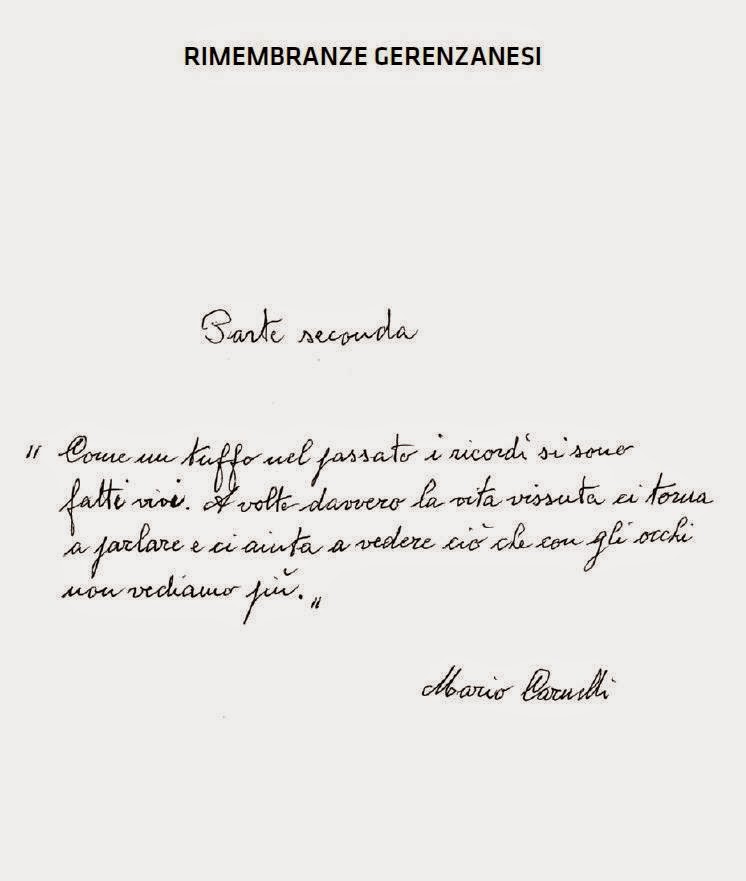 RIMEMBRANZE GERENZANESI
Parte seconda
" Come un tuffo nel passato i ricordi si sono
fatti vivi. A volte davvero la vita vissuta ci torna
a parlare e ci aiuta a vedere ciò che con gli occhi
non vediamo più. "
Mario Carnelli